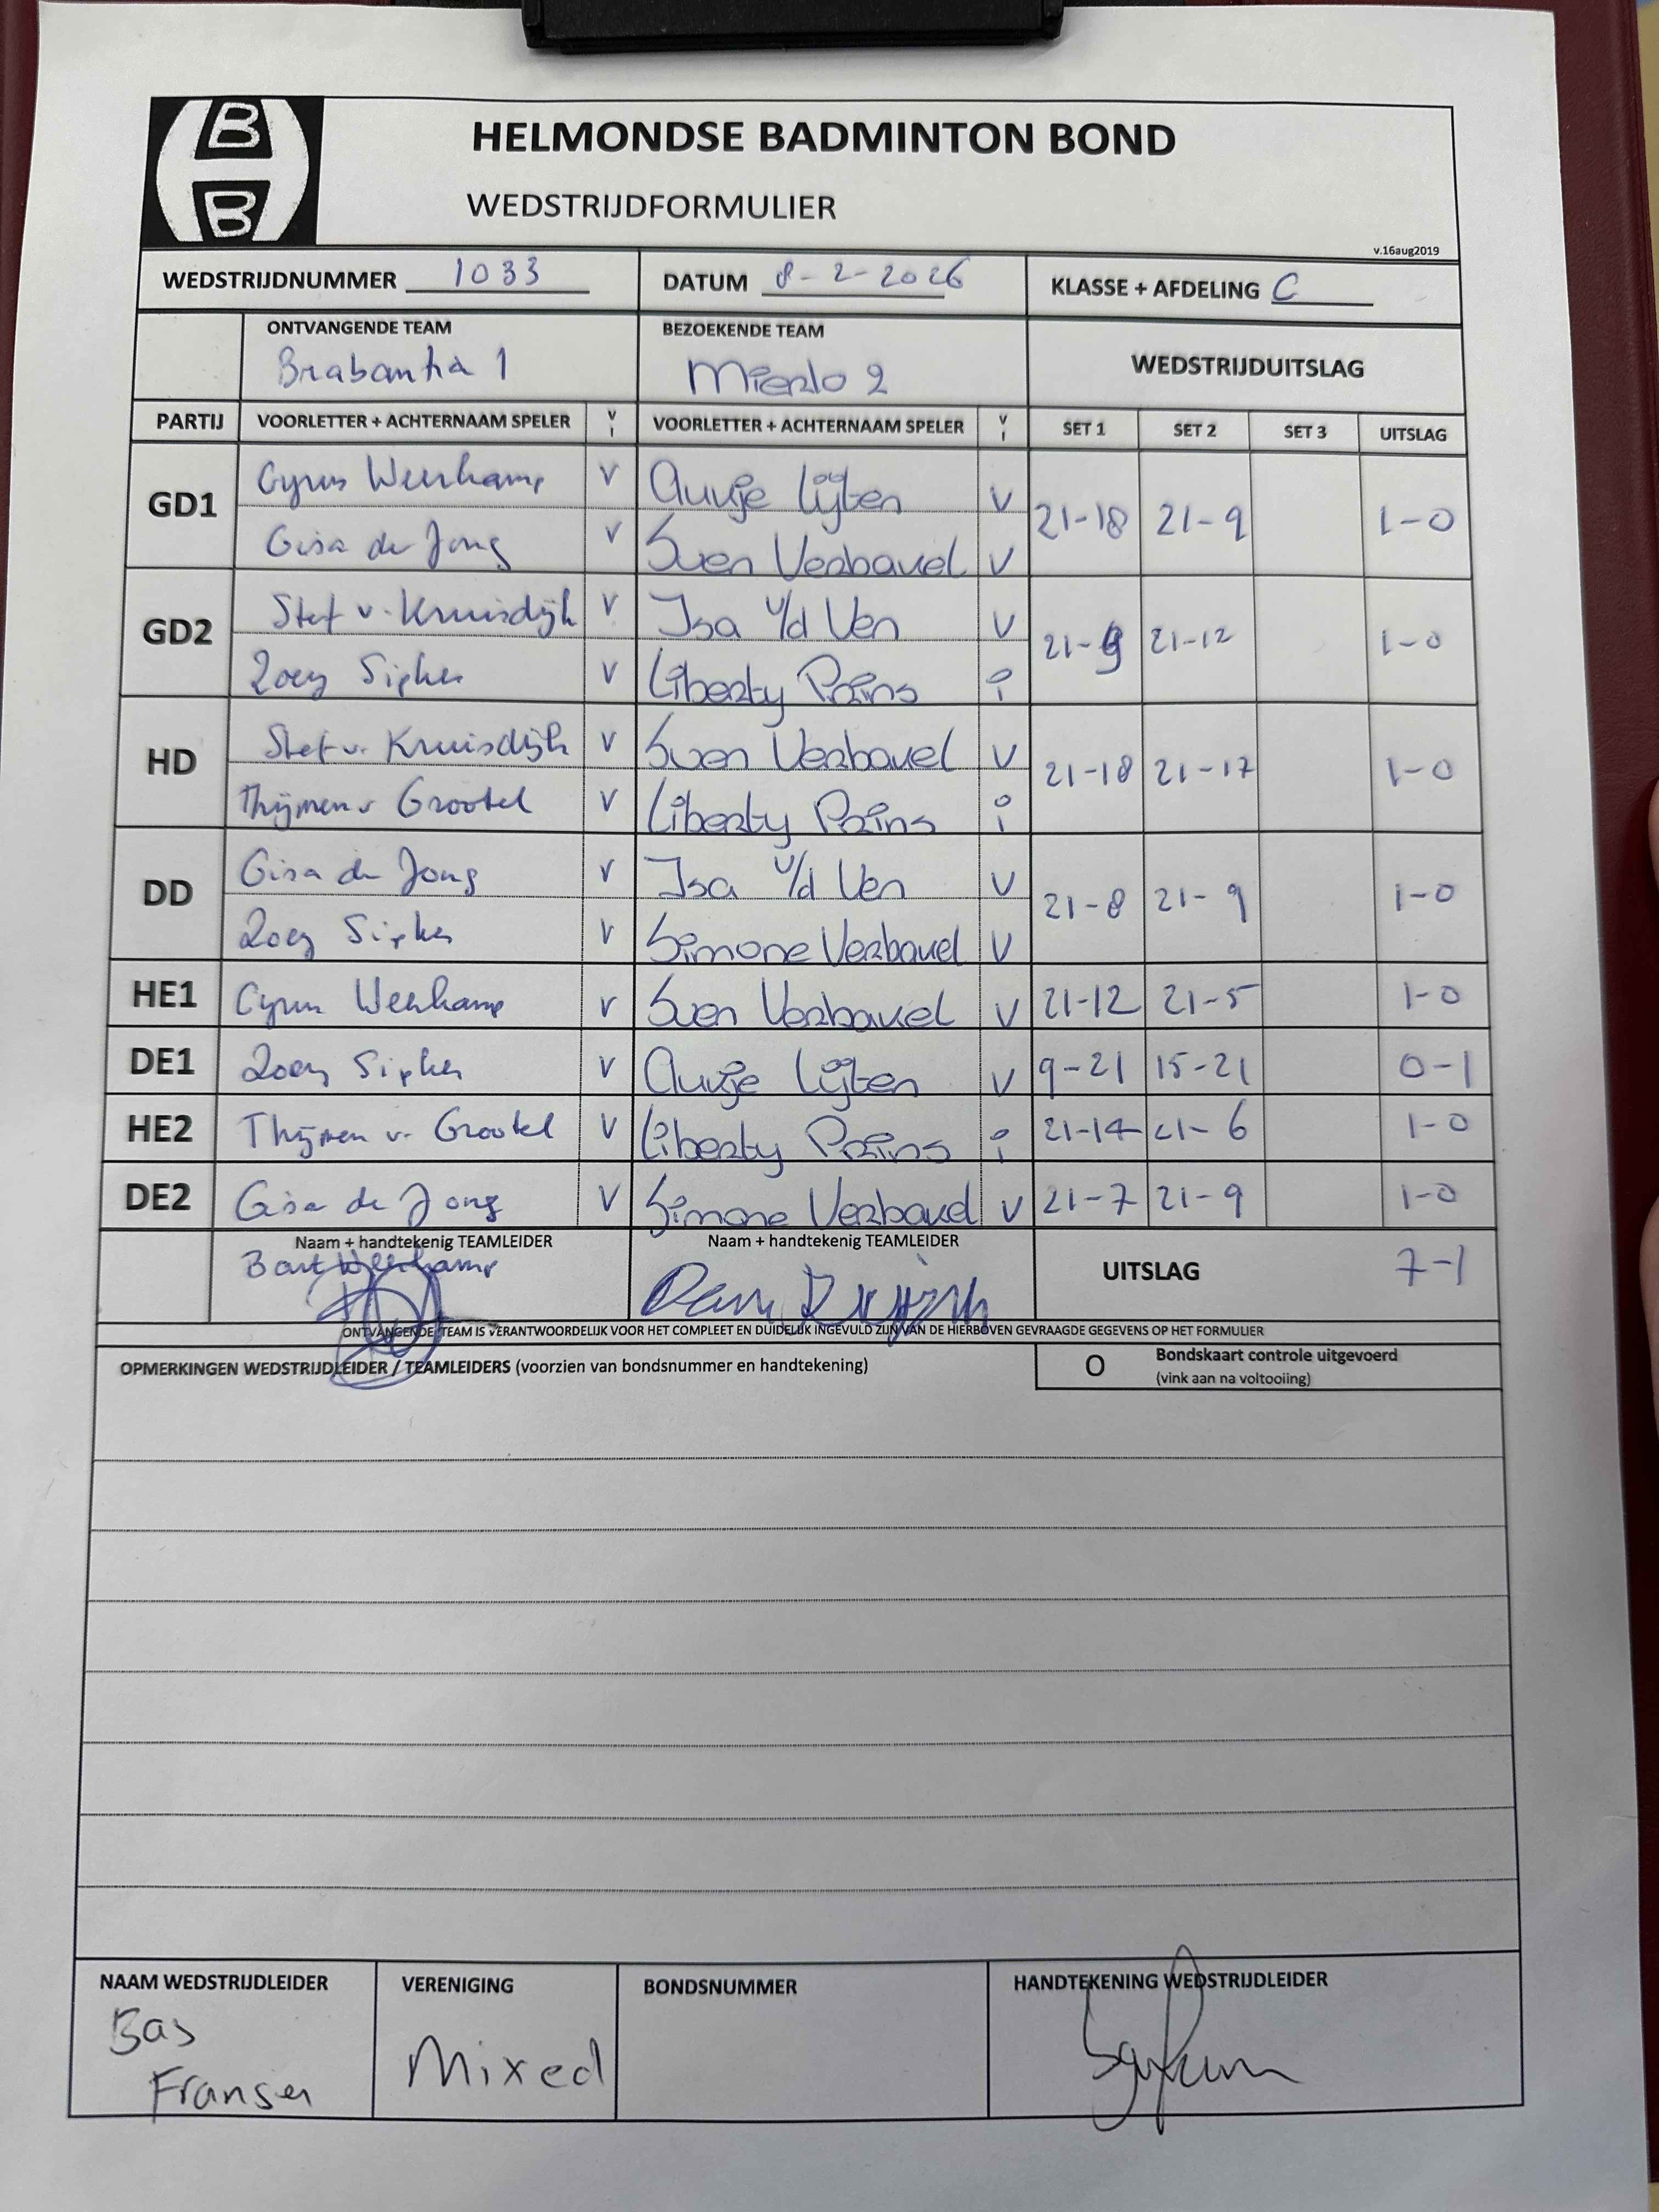 B
B
HELMONDSE BADMINTON BOND
WEDSTRIJDFORMULIER
v.16aug2019
WEDSTRIJDNUMMER 1033 DATUM 8-2-2026 KLASSE + AFDELING C
ONTVANGENDE TEAM BEZOEKENDE TEAM WEDSTRIJDUITSLAG
Brabantia 1 Mierlo 2
PARTIJ VOORLETTER + ACHTERNAAM SPELER V I VOORLETTER + ACHTERNAAM SPELER V I SET 1 SET 2 SET 3 UITSLAG
GD1 Cyrus Weerkamp V Lijten V 21-18 21-9 1-0
Gisa de Jong V Sven Verbavel V
GD2 Stef v. Kruisdijk V Isa v/d Ven V 21-9 21-12 1-0
Zoey Sipkes V Liberty Prins i
HD Stef v. Kruisdijk V Sven Verbavel V 21-18 21-17 1-0
Thijmen v Grootel V Liberty Prins i
DD Gisa de Jong V Isa v/d Ven V 21-8 21-9 1-0
Zoey Sipkes V Simone Verbavel V
HE1 Cyrus Weerkamp V Sven Verbavel V 21-12 21-5 1-0
DE1 Zoey Sipkes V Lijten V 9-21 15-21 0-1
HE2 Thijmen v. Grootel V Liberty Prins i 21-14 21-6 1-0
DE2 Gisa de Jong V Simone Verbavel V 21-7 21-9 1-0
Naam + handtekenig TEAMLEIDER Naam + handtekenig TEAMLEIDER UITSLAG 7-1
Bart Weerkamp
ONTVANGENDE TEAM IS VERANTWOORDELIJK VOOR HET COMPLEET EN DUIDELIJK INGEVULD ZIJN VAN DE HIERBOVEN GEVRAAGDE GEGEVENS OP HET FORMULIER
OPMERKINGEN WEDSTRIJDLEIDER / TEAMLEIDERS (voorzien van bondsnummer en handtekening) O Bondskaart controle uitgevoerd
(vink aan na voltooiing)
NAAM WEDSTRIJDLEIDER VERENIGING BONDSNUMMER HANDTEKENING WEDSTRIJDLEIDER
Bas
Fransen Mixed